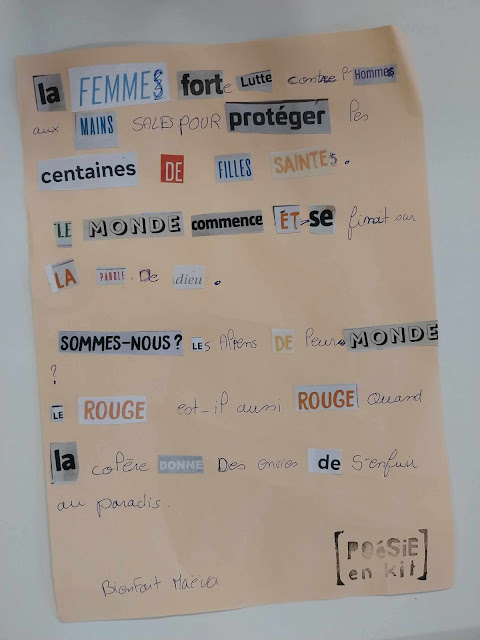 la FEMMES forte Lutte contre l'Hommes
aux MAINS SALES POUR protéger les
centaines DE FILLES SAINTES.
LE MONDE commence ET se finit sur
LA PAROLE De dieu.
SOMMES-NOUS? LEs Aliens DE leurs MONDE
?
LE ROUGE est-il aussi ROUGE Quand
la colère DONNE Des envies de S'enfuir
au paradis.
[POéSiE
en kit]
Bienfait Maeva